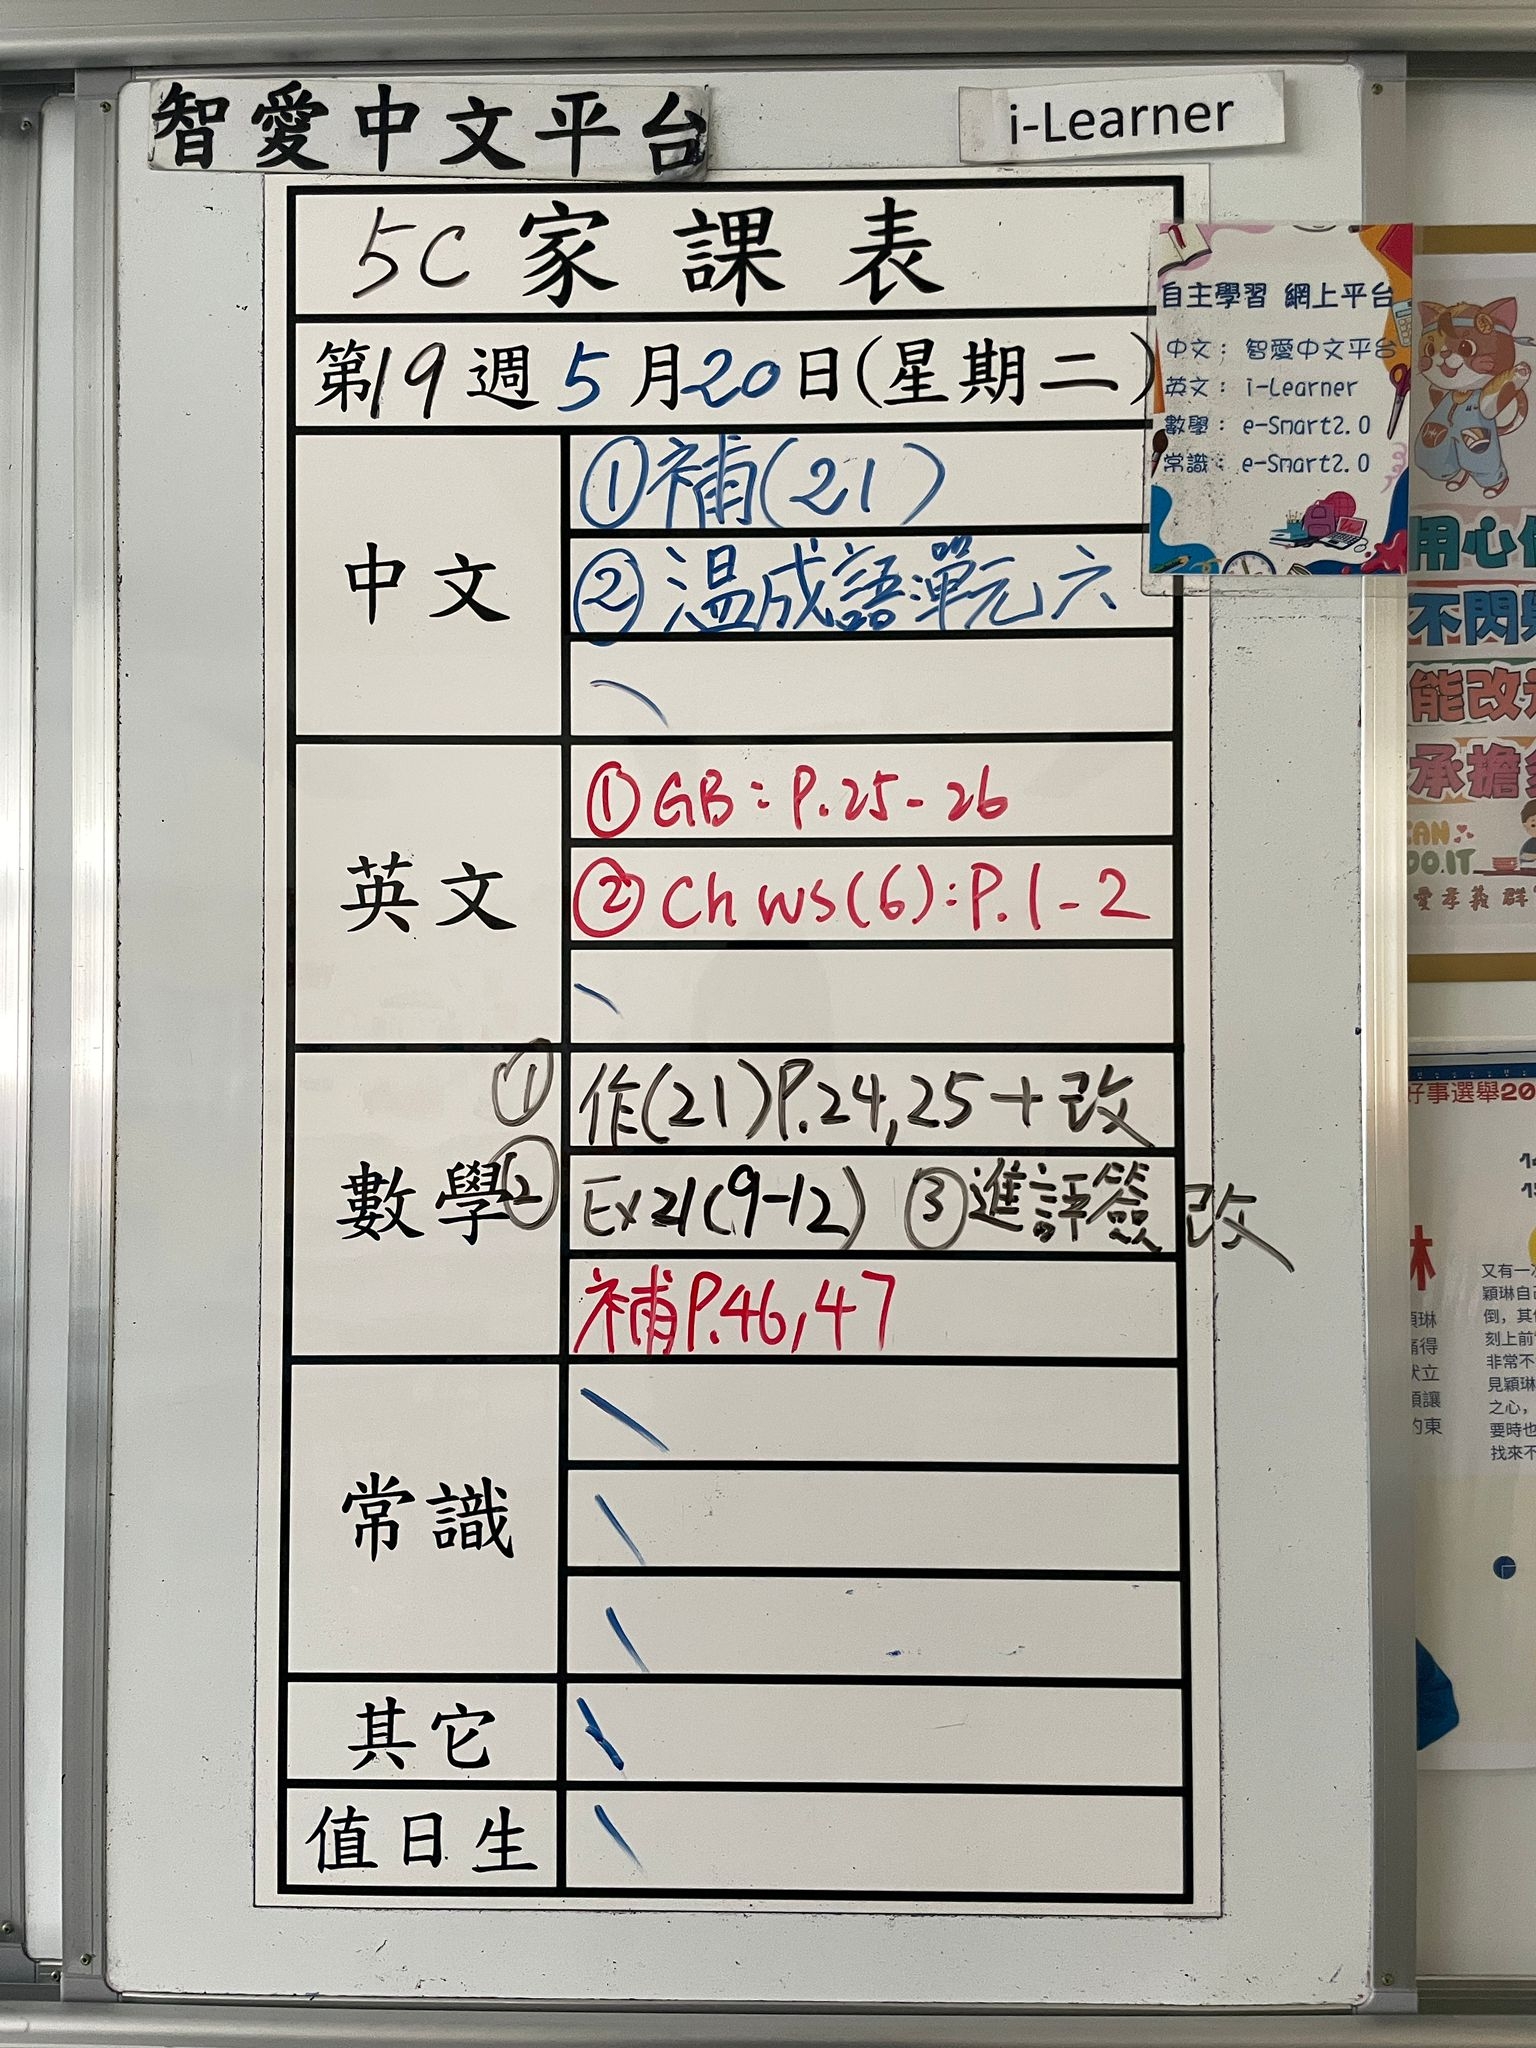 智愛中文平台
i-Learner
5C家課表
第19週5月20日(星期二)
中文
①補(21)
②温成語單元六
英文
①GB:P.25-26
②Ch WS(6):P.1-2
數學
①作(21)P.24,25+改
②Ex21(9-12) ③進評簽改
補P.46,47
常識
其它
值日生
自主學習 網上平台
中文：智愛中文平台
英文：i-Learner
數學：e-Smart2.0
常識：e-Smart2.0
用心
不閃
能改
承擔
CAN
DO.IT
愛孝義群
好事選舉20
琳
又有一
穎琳自
倒，其
刻上前
非常不
見穎琳
之心，
要時也
找來不